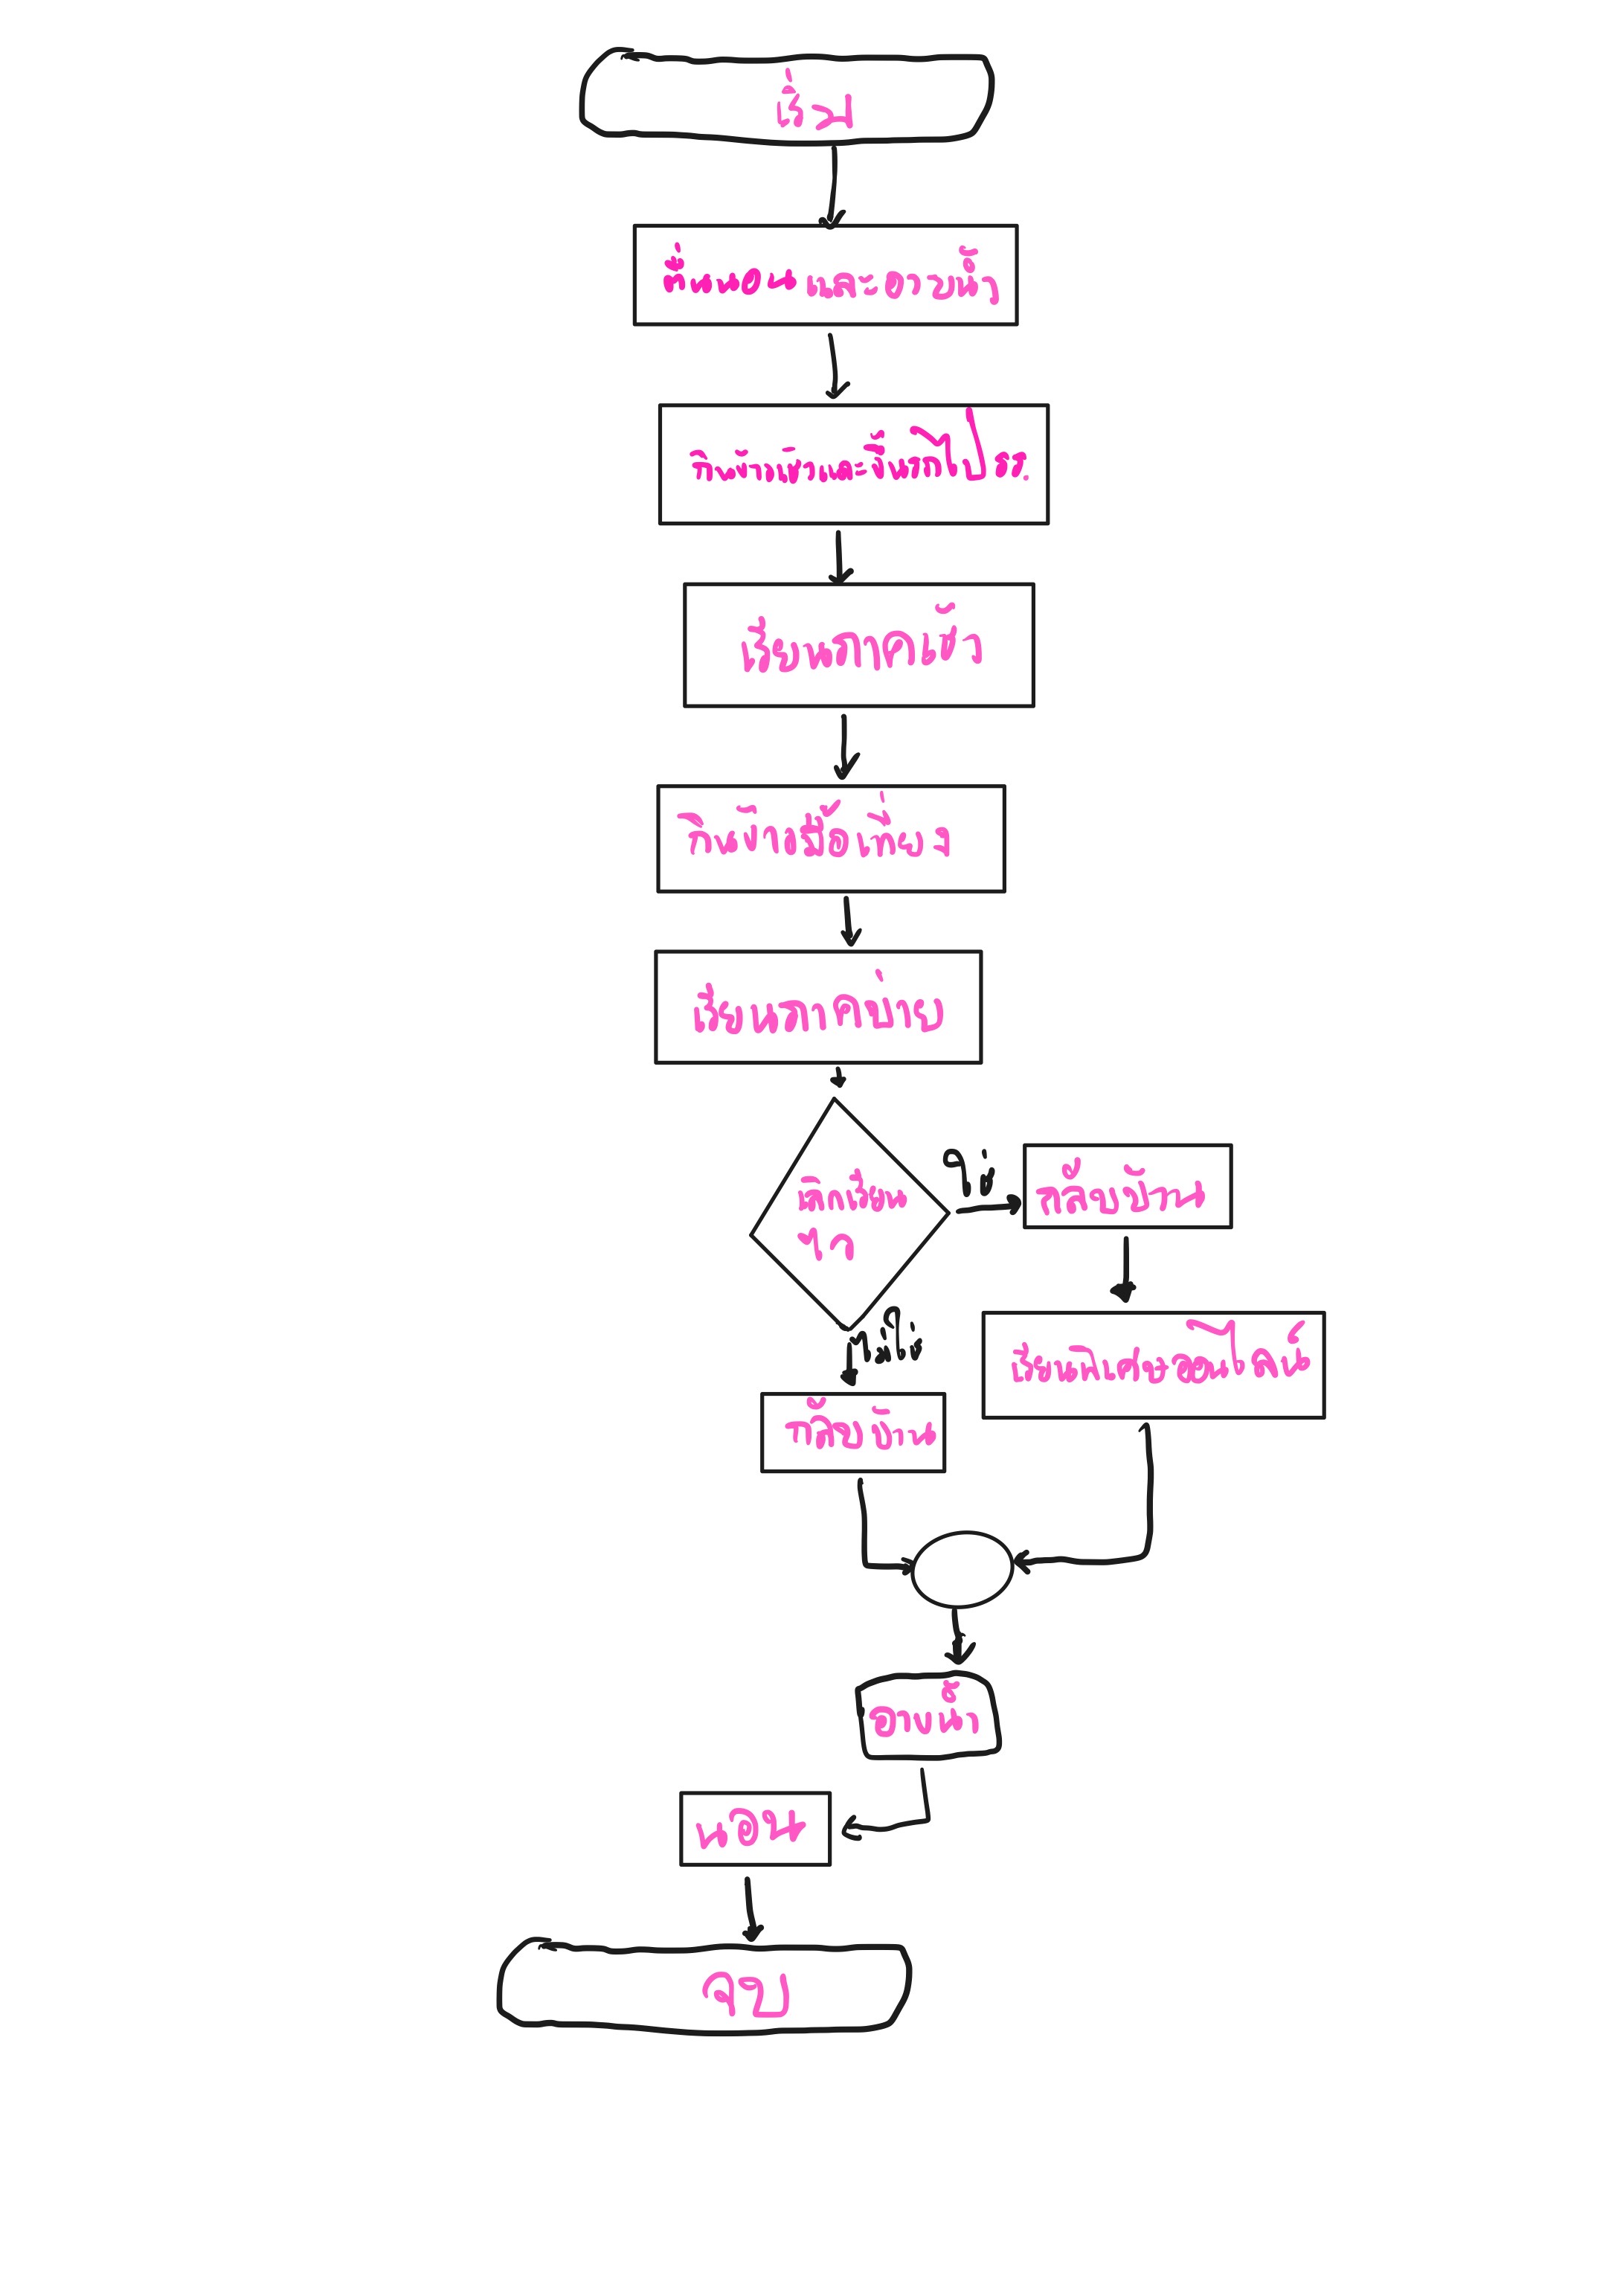 เริ่ม
ตื่นนอน และอาบน้ำ
กินข้าวเช้าและขึ้นรถไปรร.
เรียนภาคเช้า
กินข้าวมื้อเที่ยง
เรียนภาคบ่าย
เลิกเรียน
ไว
ใช่
กลับบ้าน
ไม่ใช่
เรียนพิเศษออนไลน์
กลับบ้าน
อาบน้ำ
นอน
จบ